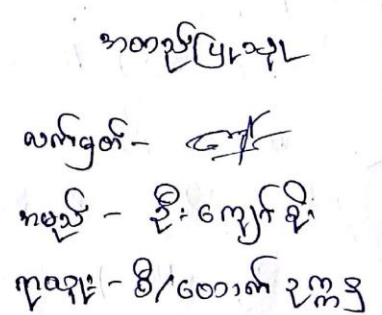 အတည်ပြုသူ
လက်မှတ် -
အမည် - ဦးကျော်စိုး
ရာထူး - စီ/ထောက် ဥက္ကဋ္ဌ